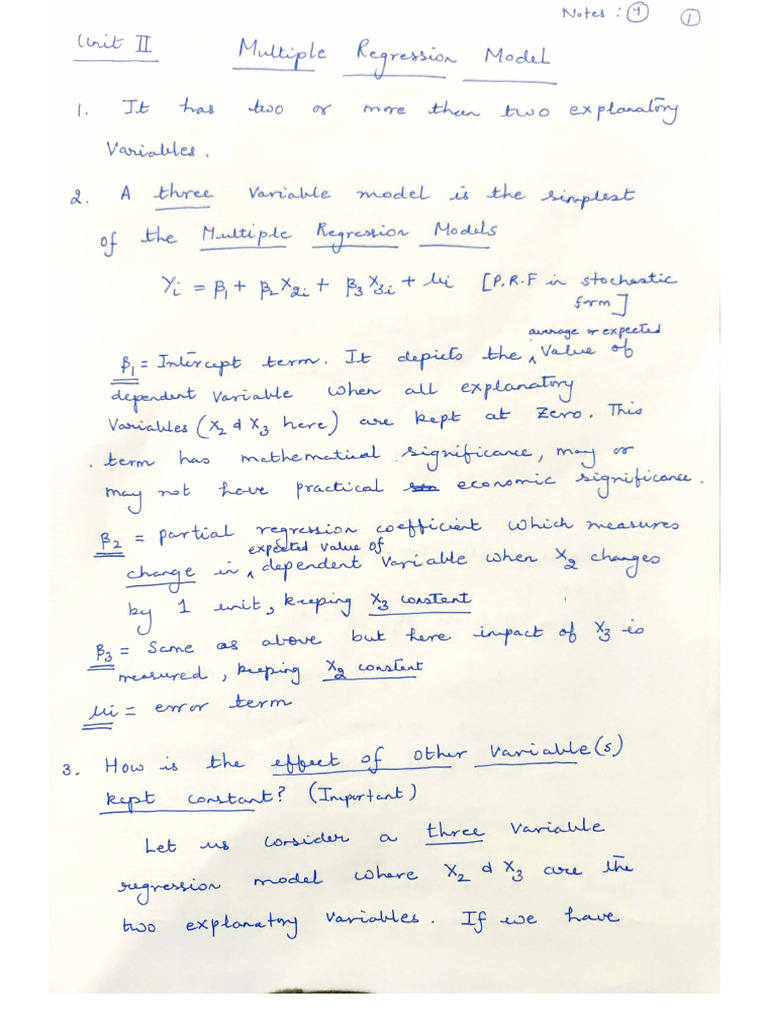 Notes : 4 1
Unit II Multiple Regression Model
1. It has two or more than two explanatory
Variables.
2. A three Variable model is the simplest
of the Multiple Regression Models
Yi = β1 + β2X2i + β3X3i + ui [P.R.F in stochastic
form]
average or expected
β1 = Intercept term. It depicts the ^ Value of
dependent Variable when all explanatory
Variables (X2 & X3 here) are kept at Zero. This
term has mathematical significance, may or
may not have practical economic significance.
β2 = partial regression coefficient which measures
expected value of
change in ^ dependent Variable when X2 changes
by 1 unit, keeping X3 constant
β3 = Same as above but here impact of X3 is
measured, keeping X2 constant
ui = error term
3. How is the effect of other Variable(s)
kept constant? (Important)
Let us consider a three Variable
regression model where X2 & X3 are the
two explanatory Variables. If we have